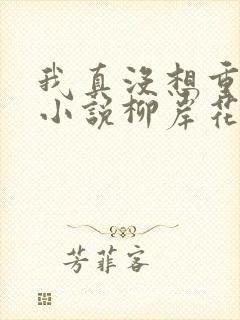 我真没想重
小说柳岸花
芳菲客